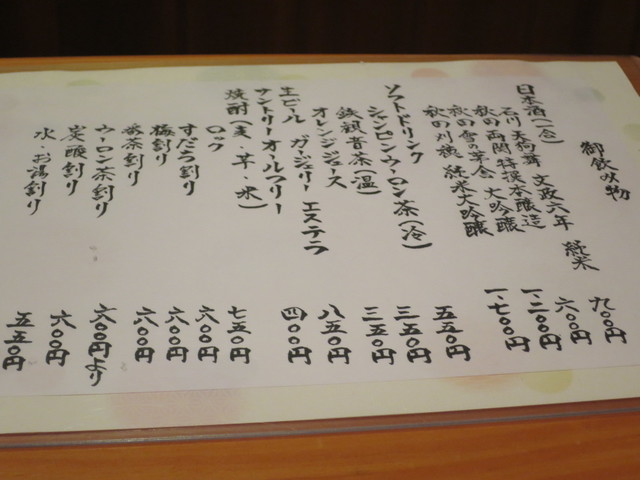 御飲み物
日本酒(一合)
石川 天狗舞 文政六年 純米 九〇〇円
秋田 両関 特撰本醸造 六〇〇円
秋田 雪の茅舎 大吟醸 一、二〇〇円
秋田 刈穂 純米大吟醸 一、七〇〇円
ソフトドリンク
シャンピンウーロン茶(冷) 五五〇円
鉄観音茶(温) 三五〇円
オレンジジュース 三五〇円
生ビール ガージェリー エステラ 八五〇円
サントリーオールフリー 四〇〇円
焼酎(麦・芋・米)
ロック 七五〇円
すだち割り 六〇〇円
梅割り 六〇〇円
番茶割り 六〇〇円
ウーロン茶割り 六〇〇円より
炭酸割り 六〇〇円
水・お湯割り 五五〇円